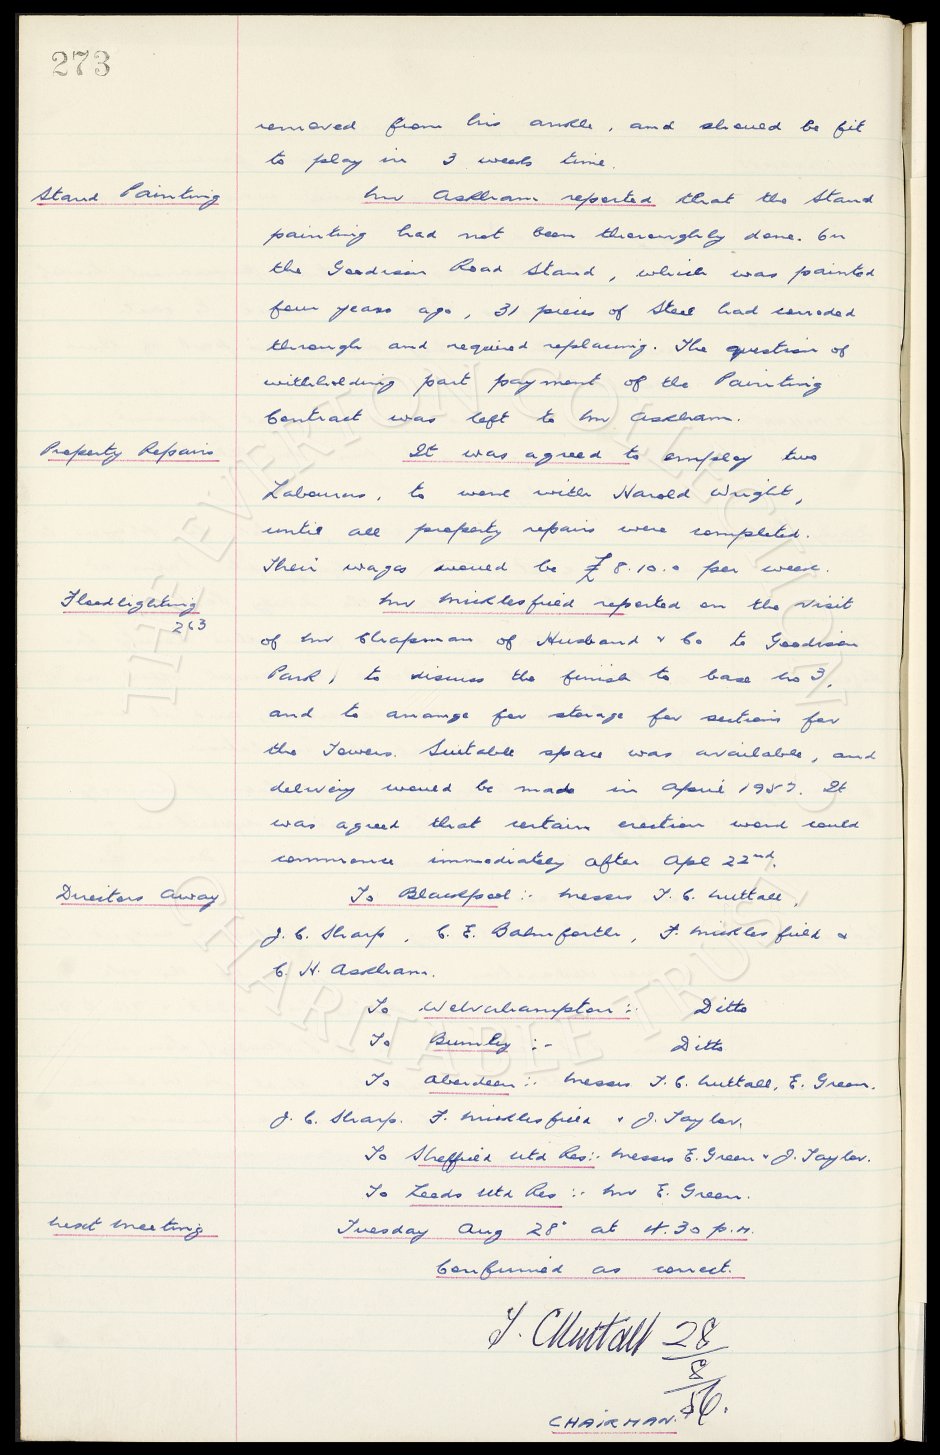 273
removed from his ankle, and should be fit
to play in 3 weeks time.
Stand Painting
Mr Askham reported that the Stand
painting had not been thoroughly done. On
the Goodison Road Stand, which was painted
four years ago, 31 pieces of Steel had corroded
through and required replacing. The question of
withholding part payment of the Painting
Contract was left to Mr Askham.
Property Repairs
It was agreed to employ two
Labourers, to work with Harold Wright,
until all property repairs were completed.
Their wages would be £8.10.0 per week.
Floodlighting
263
Mr Micklesfield reported on the visit
of Mr Chapman of Husband & Co to Goodison
Park, to discuss the finish to base No 3,
and to arrange for storage for sections for
the Towers. Suitable space was available, and
delivery would be made in April 1957. It
was agreed that certain erection work could
commence immediately after Apl 22nd.
Directors Away
To Blackpool :- Messrs T. C. Nuttall,
J. C. Sharp, C. E. Balmforth, F. Micklesfield &
C. H. Askham.
To Wolverhampton :- Ditto
To Burnley :- Ditto
To Aberdeen :- Messrs T. C. Nuttall, E. Green.
J. C. Sharp. F. Micklesfield & J. Taylor.
To Sheffield Utd Res :- Messrs E. Green & J. Taylor.
To Leeds Utd Res :- Mr E. Green.
Next Meeting
Tuesday Aug 28" at 4.30 p.m.
Confirmed as correct.
T. C Nuttall 28/8/56.
CHAIRMAN.
© THE EVERTON COLLECTION
CHARITABLE TRUST